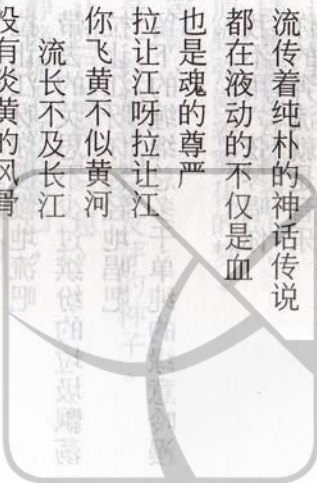 流传着纯朴的神话传说
都在液动的不仅是血
也是魂的尊严
拉让江呀拉让江
你飞黄不似黄河
流长不及长江
没有炎黄的风骨